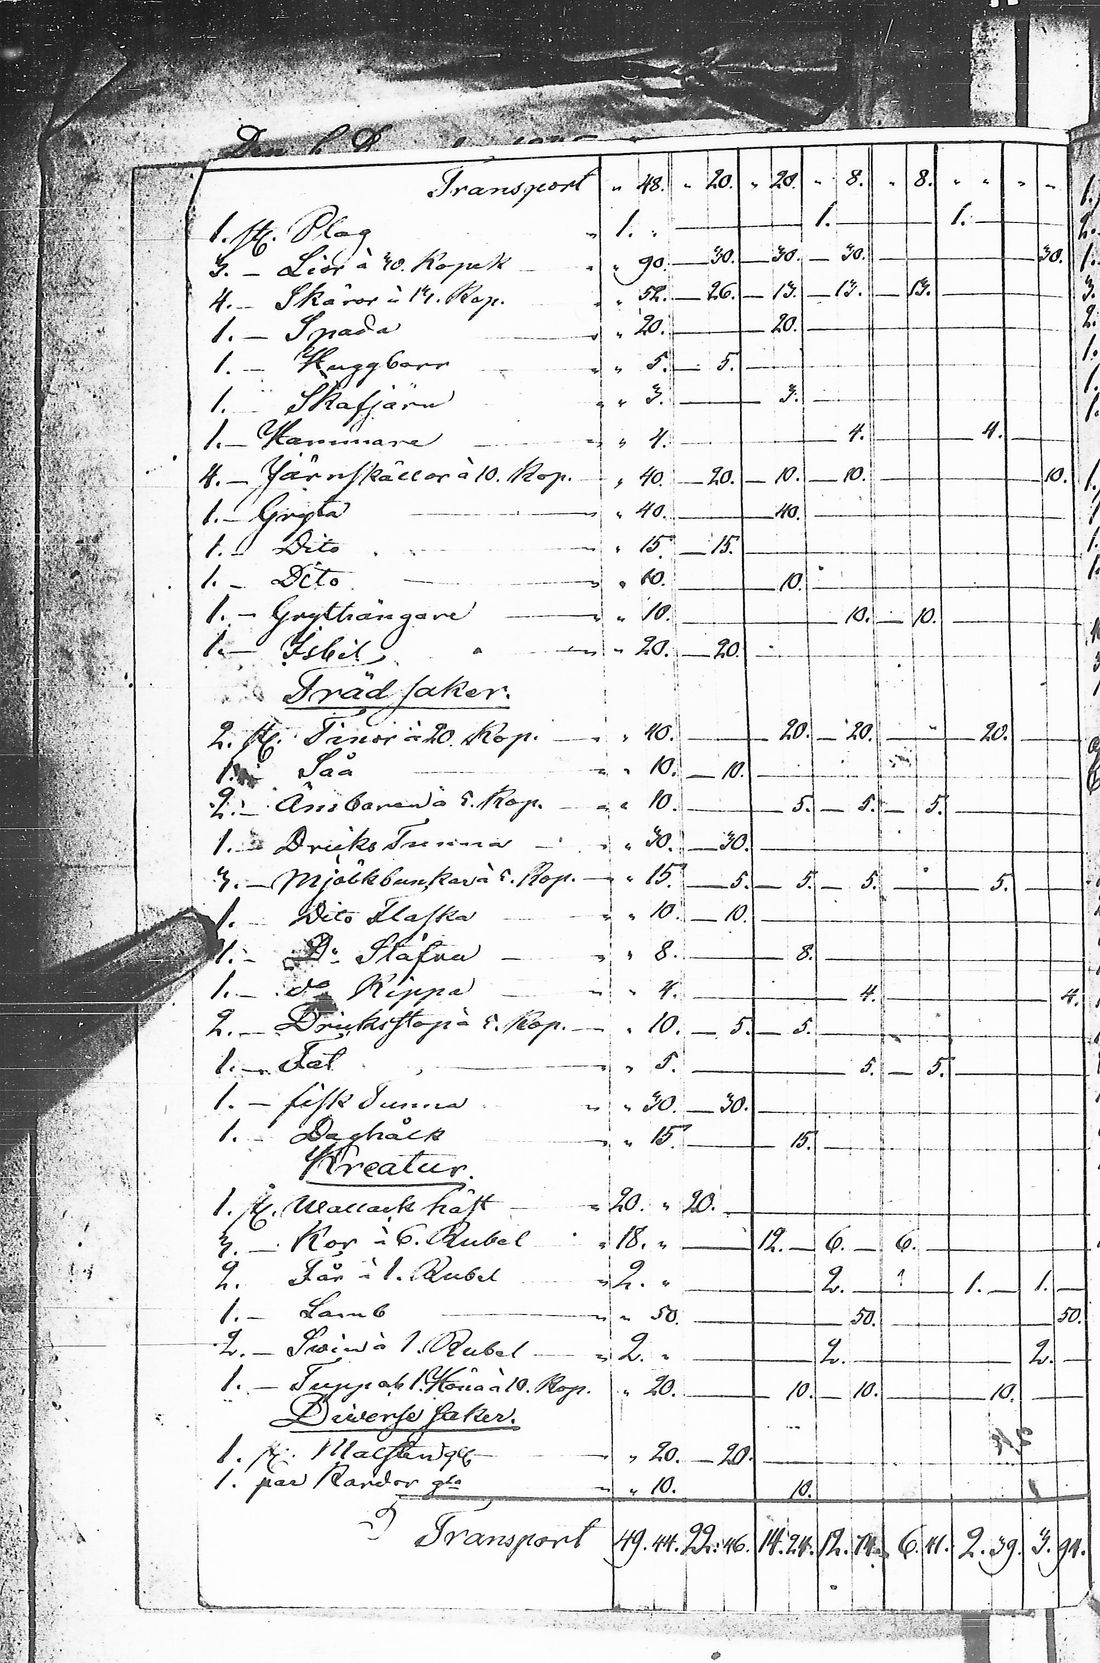 Transport " 48. " 20. " 20. " 8. " 8. " " " "
1. st. Plog " 1. " 1. 1.
3. – Liar à 30. Kopek " 90. 30. 30. 30. 30.
4. – Skäror à 13. Kop. " 52. 26. 13. 13. 13.
1. – Spada " 20. 20.
1. – Huggbarr " 5. 5.
1. Skafjärn " 3. 3.
1. – Hammare " 4. 4. 4.
4. – Järnskållor à 10. Kop. " 40. 20. 10. 10. 10.
1. – Gryta " 40. 40.
1. – Dito " 15. 15.
1. – Dito " 10. 10.
1. – Grythängare " 10. 10. 10.
1. – Isbil " 20. 20.
Träd saker.
2. st. Tinor à 20. Kop. " 40. 20. 20. " 20.
1. Såå " 10. 10.
2. – Ämbaren à 5. Kop. " 10. 5. 5. 5.
1. – Dricks Tunna " 30. 30.
3. – Mjölkbunkar à 5. Kop. " 15. 5. 5. 5. 5.
1. – Dito Flaska " 10. 10.
1. – Do Stäfva " 8. 8.
1. – do Kippa " 4. 4. 4.
2. – Dricksstop à 5. Kop. " 10. 5. 5.
1. – Fat " 5. 5. 5.
1. – fisk Tunna " 30. 30.
1. – " 15. 15.
Kreatur.
1. st. Wallack häst " 20. " 20.
3. – Kor à 6. Rubel " 18. " 12. 6. 6.
2. Får à 1. Rubel " 2. " 2. 1. 1.
1. – Lamb " 50. 50. 50.
2. – Swin à 1. Rubel " 2. " 2. 2.
1. – Tupp och 1. Höna à 10. Kop. " 20. 10. 10. 10.
Diverse saker.
1. st. " 20. 20.
1. par Kardor gla " 10. 10.
Transport 49. 44. 22. 46. 14. 24. 12. 6. 41. 2. 39. 3. 94.